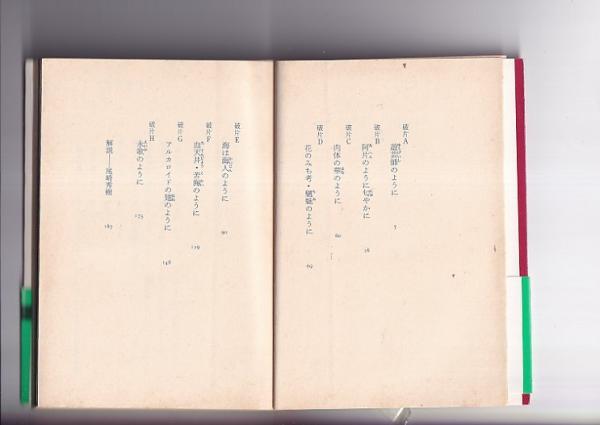 破片A
のように 7
破片B
阿片のように
やかに
破片C
肉体の華のように 60
破片D
花のみち考・のように 69
破片E
海は海人のように 90
破片F
血天井・苦海のように 119
破片G
アルカロイドののように 148
破片H
のように 175
解説——尾崎秀樹 187